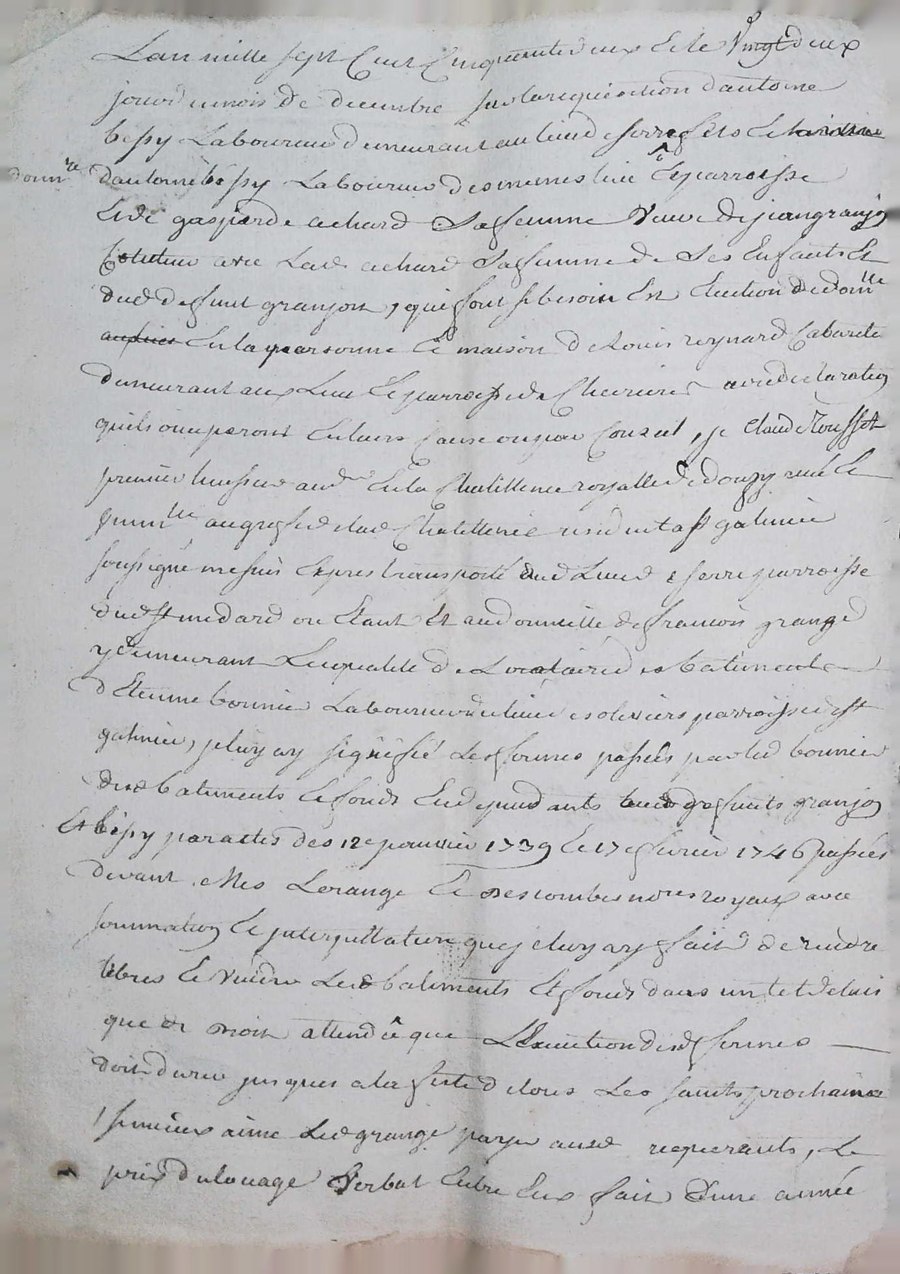 Lan mille sept Cent Cinquante deux Et le Vingt deux
jour du mois de decembre sur la requisition dantoine
bessy Laboureur demeurant au lieu de
dantoine bessy Laboureur de mesme lieu Et parroisse
Et de gasparde achard Sa femme Veuve de jean granjon
avec Lad achard Sa femme de Ses Enfants Et
dud deffunt granjon, qui font si besoin Est Election de dom lle
En la personne Et maison de Louis reynard Cabaretier
demeurant aux Lieu Et parroisse de Chevrieres avec declaration
quils occuperont En leurs Cause ou par Conseil, je Claude Rousset
premier huissier aud En la Chatellenie royalle de donzy receu Et
au greffe de lad Chatellenie residant a st galmier
soussigné me suis Expres transporté au Lieu parroisse
de st medard ou Etant Et au domicille de francois grange
y demeurant En qualité de Locataire des batiments
d Etienne bonnier Laboureur du lieu parroisse de st
galmier, je luy ay signiffié Les fermes passées par led bonnier
desd batiments Et fonds En dependants auxd deffunts granjon
Et bessy par actes des 12e janvier 1739 Et 17e fevrier 1746 passées
devant Mes Lerange Et Descombes no res royaux avec
sommation Et interpellation que je luy ay fait de rendre
libres Et Vuides Lesd batiments Et fonds dans un tel delais
que de droit attendû que L'Execution desd fermes
doit durer jusques a la feste de tous Les saints prochaine
si mieux aime Led grange payer auxd requerants, Le
prix du louage Verbal Entre Eux fait dune année